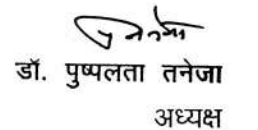 डॉ. पुष्पलता तनेजा
अध्यक्ष